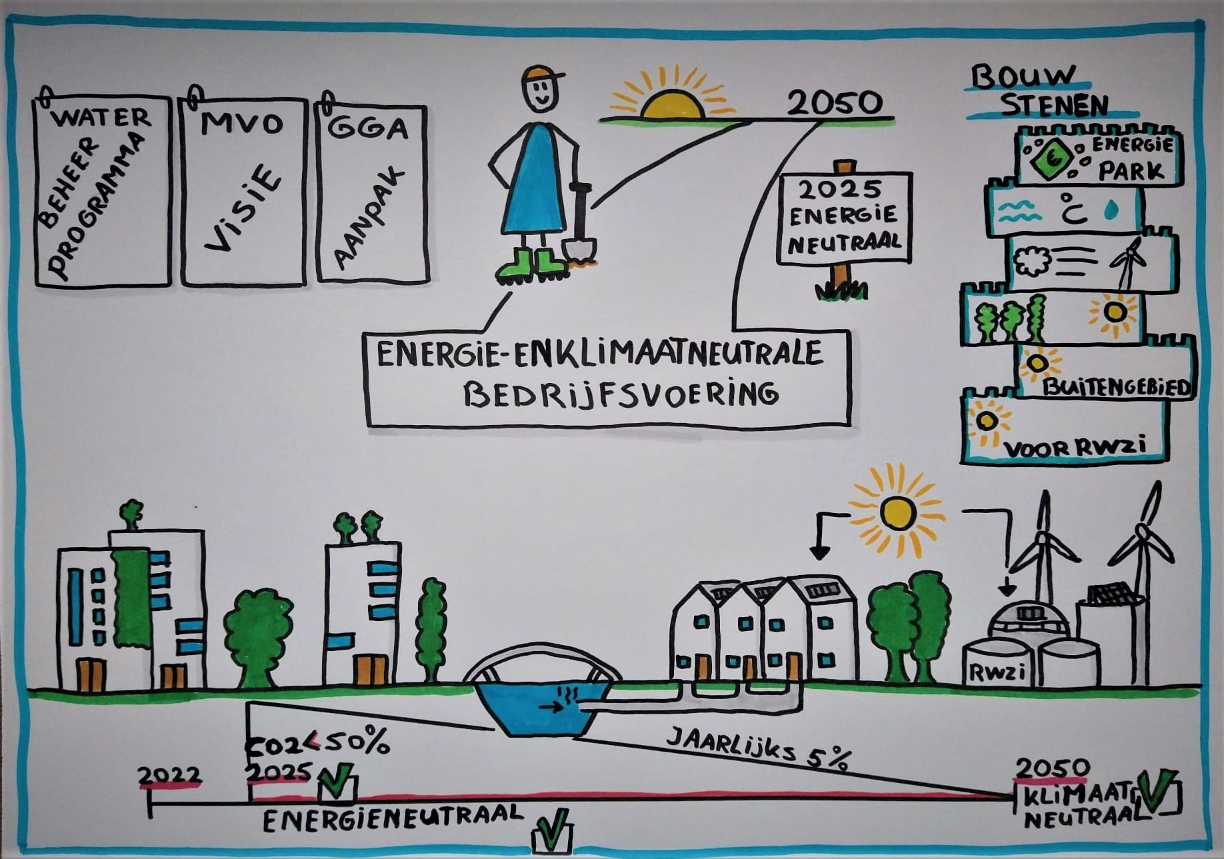 WATER
BEHEER
PROGRAMMA
MVO
VISIE
GGA
AANPAK
2050
2025
ENERGIE
NEUTRAAL
ENERGIE-ENKLIMAATNEUTRALE
BEDRIJFSVOERING
BOUW
STENEN
€ ENERGIE
PARK
°C
BUITENGEBIED
VOOR RWZI
RWZI
CO2<50%
JAARLIJKS 5%
2022
2025
2050
ENERGIENEUTRAAL
KLIMAAT
NEUTRAAL